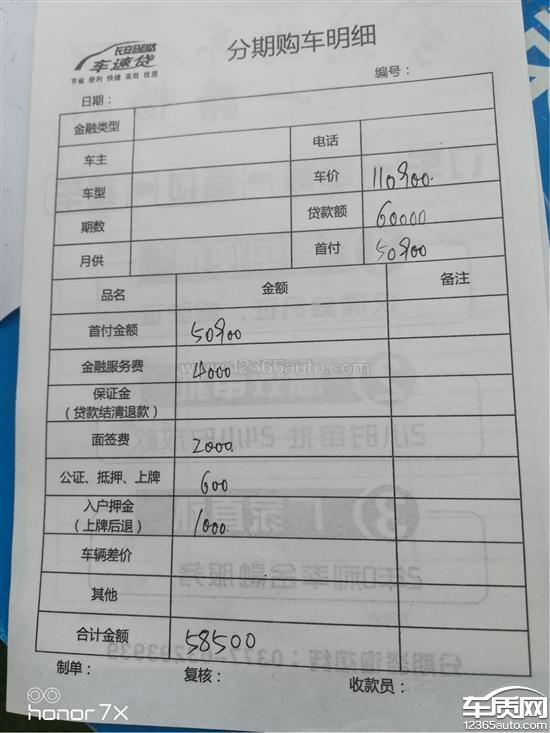 长安马自达
车速贷
节省 便利 快捷 高效 优质
分期购车明细
编号：
日期：
金融类型
车主 电话
车型 车价 110900.
期数 贷款额 60000
月供 首付 50900
品名 金额 备注
首付金额 50900
金融服务费 4000
www.12365auto.com
保证金
（贷款结清退款）
面签费 2000
公证、抵押、上牌 600
入户押金
（上牌后退） 1000
车辆差价
其他
合计金额 58500
制单： 复核： 收款员：
honor 7X
车质网
12365auto.com